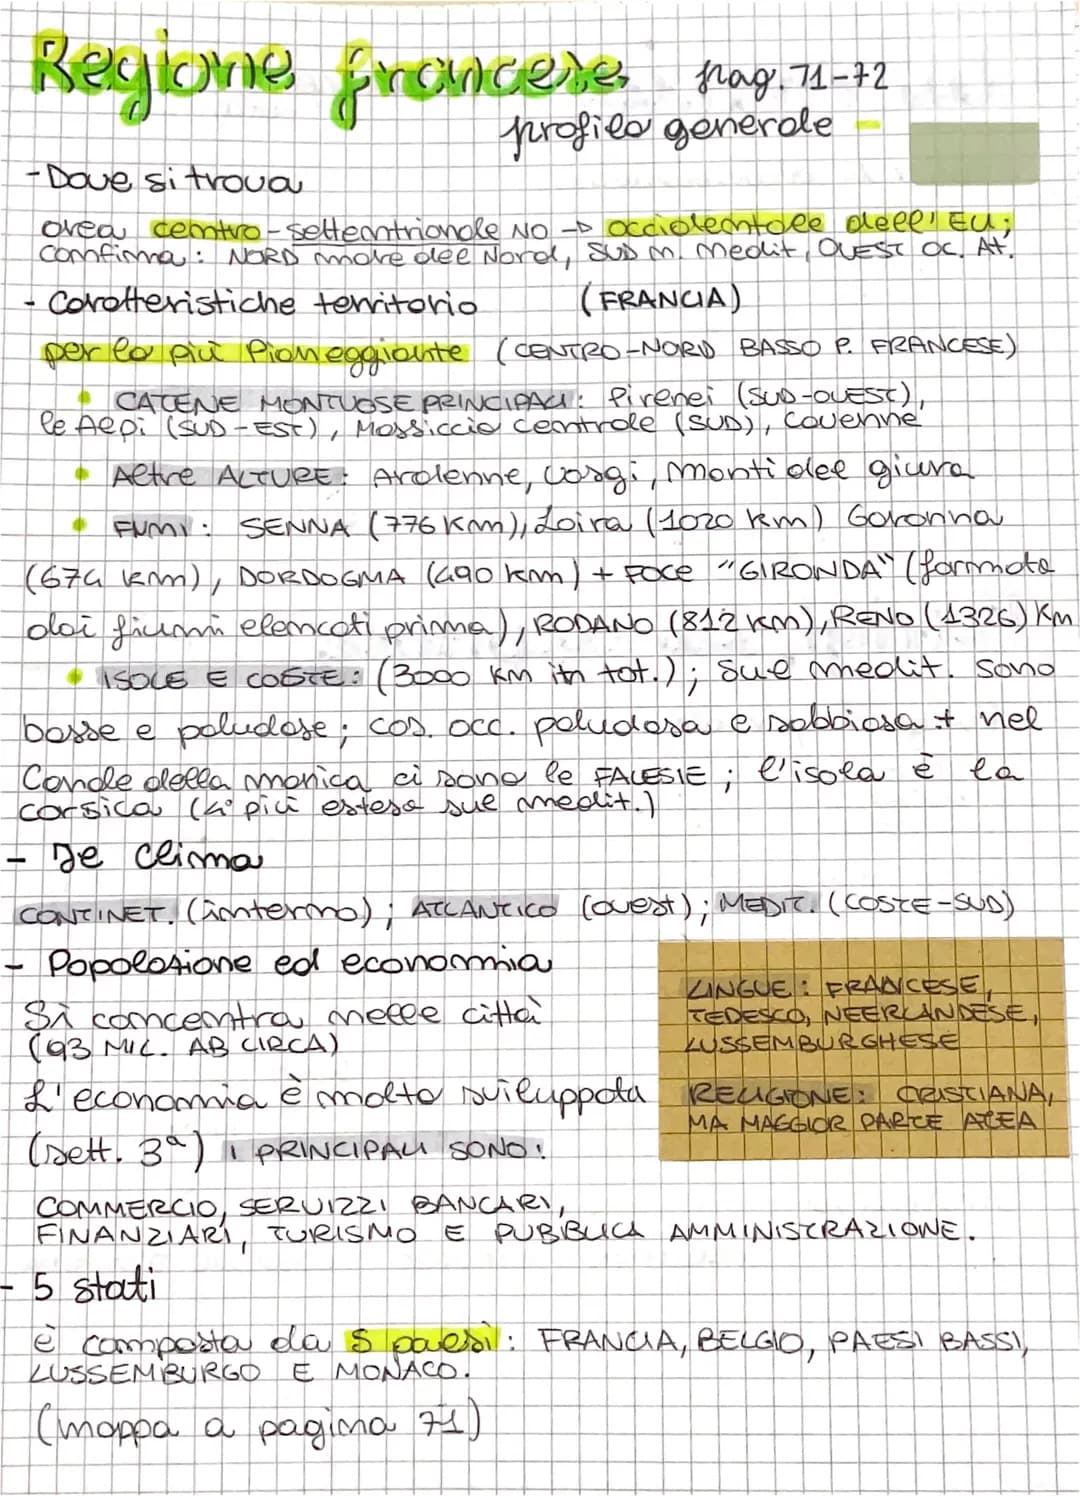 Regione francese pag. 71-72
profilo generale -
- Dove si trova
area centro-settentrionale NO -> occidentale dell'EU;
confina: NORD mare del Nord, SUD m. medit, OVEST OC. At.
- Caratteristiche territorio (FRANCIA)
per lo più Pianeggiante (CENTRO-NORD BASSO P. FRANCESE)
• CATENE MONTUOSE PRINCIPALI: Pirenei (SUD-OUEST),
le Alpi (SUD-EST), Massiccio centrale (SUD), Cavenne
• Altre ALTURE: Ardenne, Vosgi, Monti del giura
• FIUMI: SENNA (776 Km), Loira (1020 km) Garonna
(674 km), DORDOGMA (490 km) + FOCE "GIRONDA" (formata
dai fiumi elencati prima), RODANO (812 km), RENO (1326) Km
• ISOLE E COSTE: (3000 km in tot.); sul medit. sono
basse e paludose; cos. occ. paludosa e sabbiosa + nel
Canale della manica ci sono le FALESIE; l'isola è la
corsica (4° più estesa sul medit.)
- Il clima
CONTINET. (interno); ATLANTICO (ovest); MEDIT. (COSTE-SUD)
- Popolazione ed economia
Si concentra nelle città
(93 MIL. AB CIRCA)
L'economia è molto sviluppata
(sett. 3ª) I PRINCIPALI SONO:
COMMERCIO, SERVIZZI BANCARI,
FINANZIARI, TURISMO E PUBBLICA AMMINISTRAZIONE.
LINGUE: FRANCESE,
TEDESCO, NEERLANDESE,
LUSSEMBURGHESE
RELIGIONE: CRISTIANA,
MA MAGGIOR PARTE ATEA
- 5 stati
è composta da 5 paesi: FRANCIA, BELGIO, PAESI BASSI,
LUSSEMBURGO E MONACO.
(mappa a pagina 71)